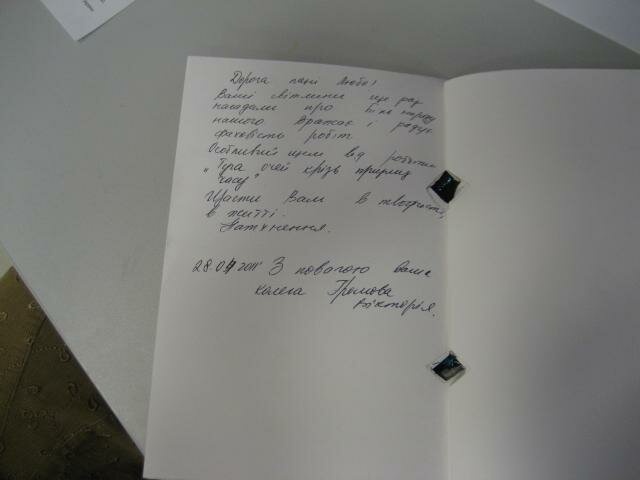 Дорога пані Любо!
Ваші світлини ще раз
нагадали про
нашого Вражає і радує
фаховість робіт.
Особливий щем від роботи
„Туга очей крізь призму
часу"
Щастя Вам в творчості,
в житті.
Натхнення.
28.04 2011 З повагою Ваша
колега Громова
Вікторія.